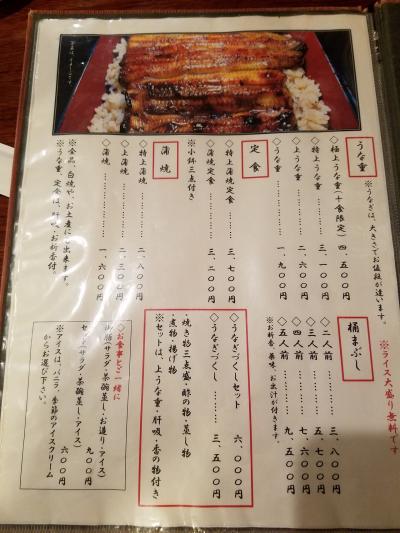 うな重
※うなぎは、大きさでお値段が違います。
◇極上うな重(十食限定) 四、五〇〇円
◇特上うな重 三、一〇〇円
◇上うな重 二、四〇〇円
◇うな重 一、九〇〇円
定食
◇特上蒲焼定食 三、七〇〇円
◇蒲焼定食 三、二〇〇円
※小鉢三点付き
蒲焼
◇特上蒲焼 二、八〇〇円
◇上蒲焼 二、三〇〇円
◇蒲焼 一、六〇〇円
※全品、白焼や、お土産にも出来ます。
※うな重、定食は、肝吸、お新香付。
※ライス大盛り無料です
桶まぶし
◇二人前 三、八〇〇円
◇三人前 五、七〇〇円
◇四人前 七、六〇〇円
◇五人前 九、五〇〇円
※お新香、薬味、お出汁が付きます。
◇うなぎづくしセット 六、〇〇〇円
◇うなぎづくし 三、五〇〇円
・焼き物三点盛・酢の物・蒸し物
・煮物・揚げ物
※セットは、上うな重・肝吸・香の物付き
◇お食事とご一緒に
(サラダ・茶碗蒸し・お造り・アイス)
九〇〇円
セット(サラダ・茶碗蒸し・アイス)
六〇〇円
※アイスは、バニラ・季節のアイスクリーム
からお選び下さい。